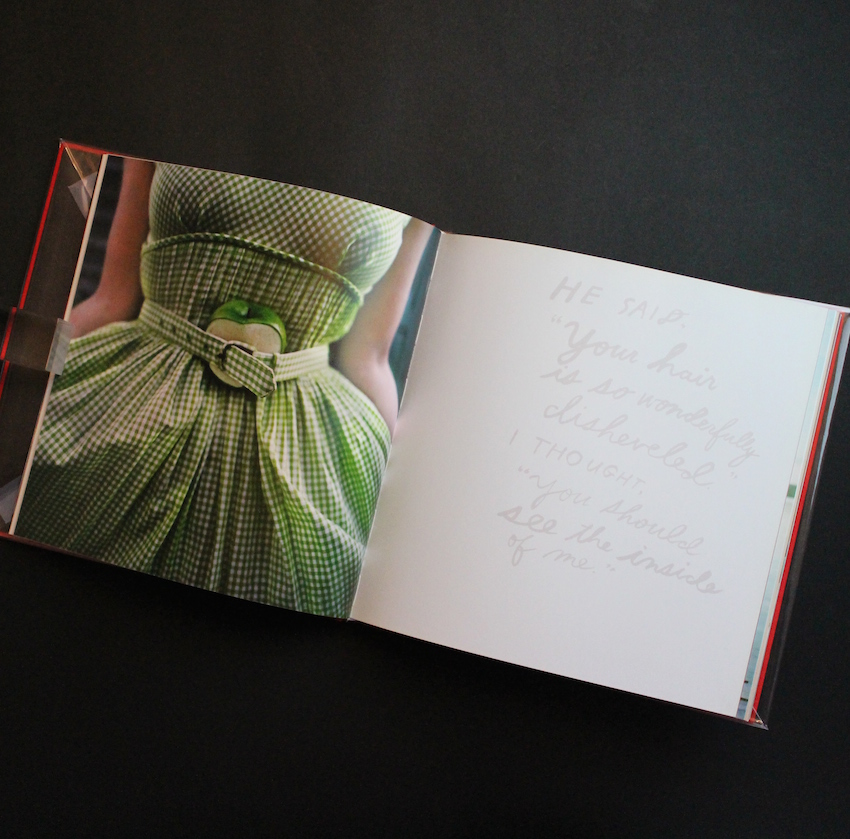 HE SAID.
"Your hair
is so wonderfuly
disheveled"
I THOUGHT.
"you should
see the inside
of me."